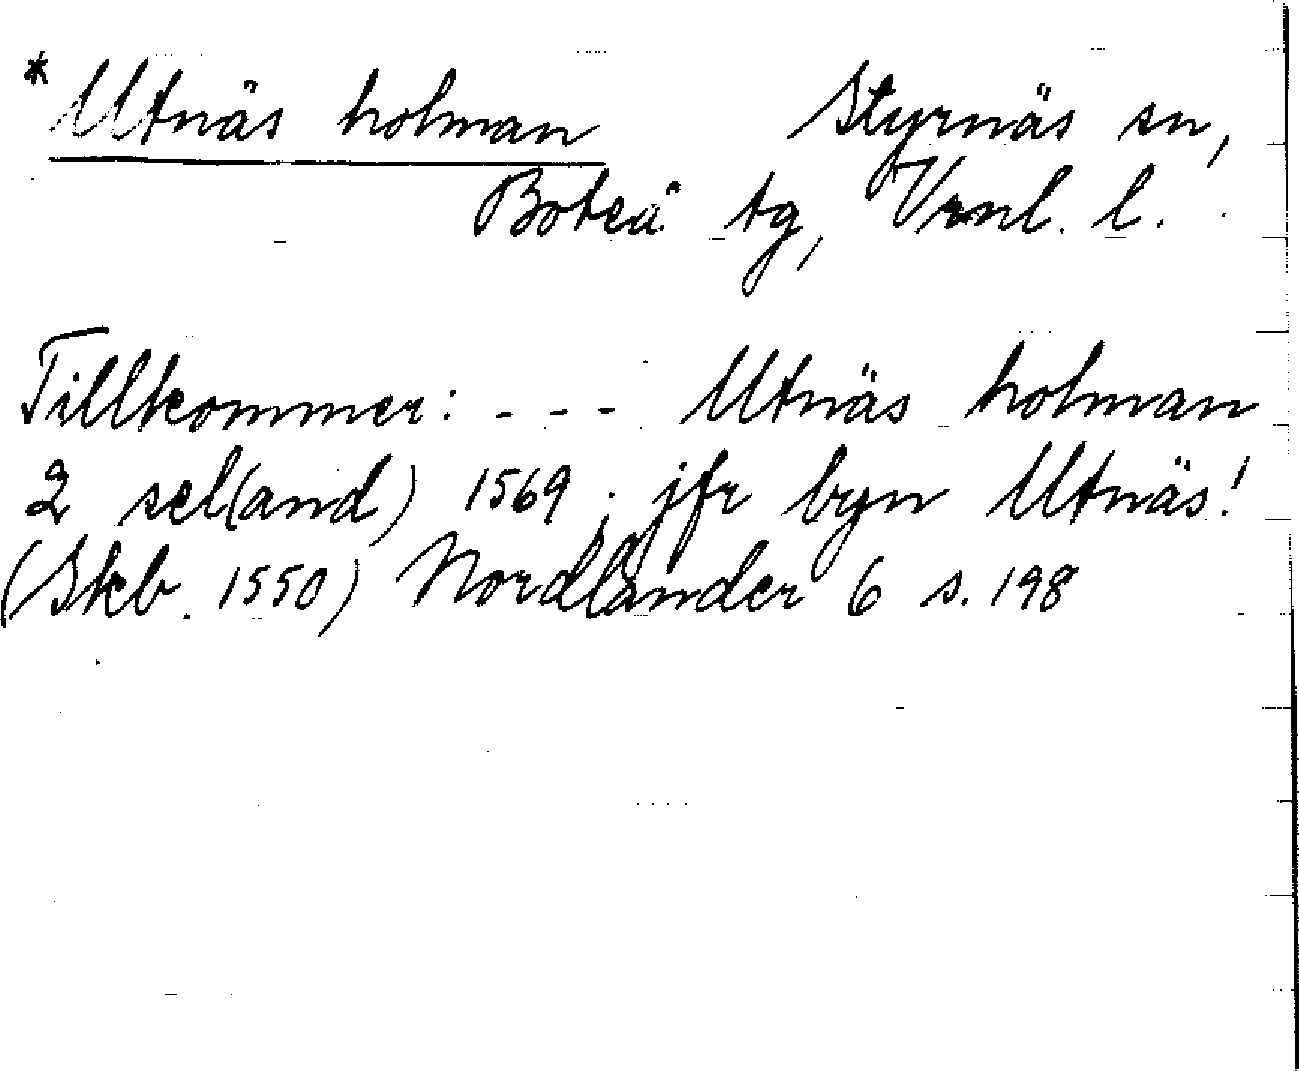 * Utnäs holman Styrnäs sn,
Boteå tg, Vrnl. l.
Tillkommer: - - - Utnäs holman
2 sel(and) 1569; jfr byn Utnäs!
(Skb. 1550) Nordlander 6 s. 198